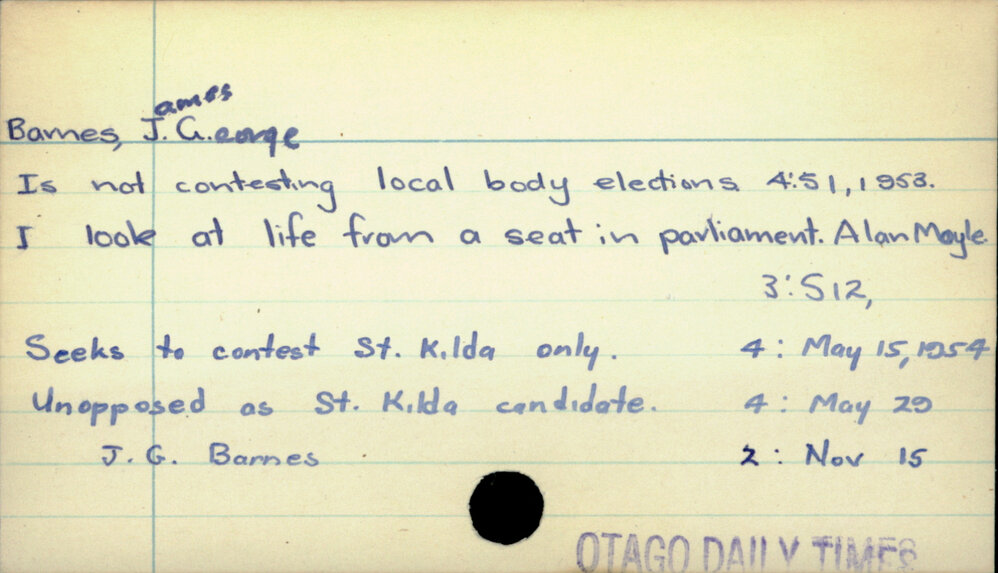 Barnes, J.ames G.eorge
Is not contesting local body elections 4:51, 1953.
I look at life from a seat in parliament. Alan Moyle.
3:S12,
Seeks to contest St. Kilda only. 4: May 15, 1954
Unopposed as St. Kilda candidate. 4: May 29
J. G. Barnes 2: Nov 15
OTAGO DAILY TIMES